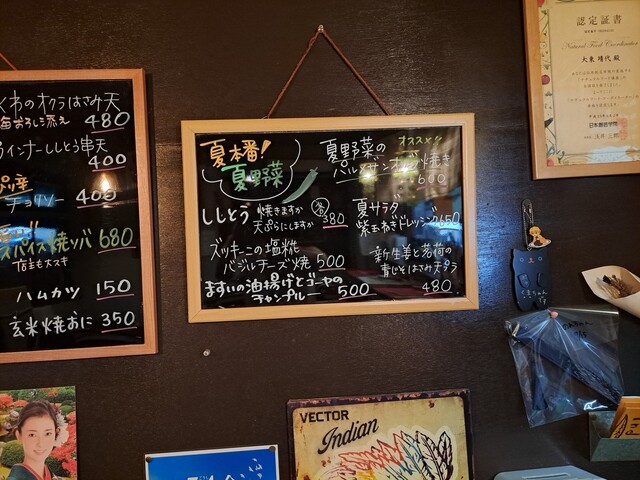 くわのオクラはさみ天
梅おろし添え 480
インナーししとう串天
400
チョリソー 400
スパイス焼ソバ 680
店主も大スキ
ハムカツ 150
玄米焼おに 350
夏本番!
夏野菜
ししとう 焼きますか
天ぷらにしますか 各380
ズッキーニの塩糀
バジルチーズ焼 500
ますいの油揚げとゴーヤの
チャンプルー 500
オススメ!!
夏野菜の
パルメザンオーブン焼き
600
夏サラダ
紫玉ねぎドレッシング 650
新生姜と茗荷の
青じそはさみ天プラ
480
認定証書
Natural Food Coordinator
大東 晴代 殿
VECTOR
Indian